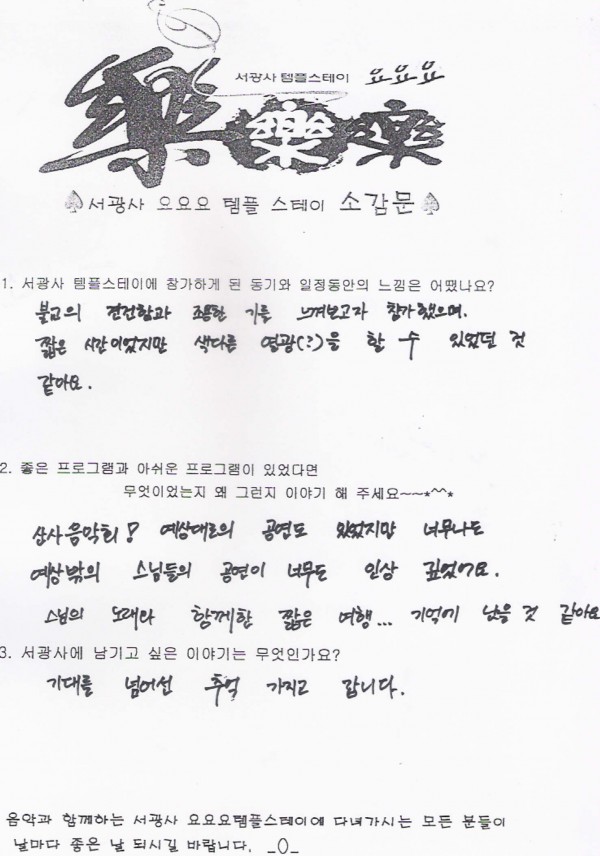 서광사 템플스테이 요요요
樂 樂 樂
서광사 요요요 템플 스테이 소감문
1. 서광사 템플스테이에 참가하게 된 동기와 일정동안의 느낌은 어땠나요?
불교의 경건함과 조용한 기를 느껴보고자 참가했으며.
짧은 시간이었지만 색다른 영광(?)을 할 수 있었던 것
같아요.
2. 좋은 프로그램과 아쉬운 프로그램이 있었다면
무엇이었는지 왜 그런지 이야기 해 주세요~~*^^*
산사음악회! 예상대로의 공연도 있었지만 너무나도
예상밖의 스님들의 공연이 너무도 인상 깊었어요.
스님의 노래와 함께한 짧은 여행... 기억에 남을 것 같아요
3. 서광사에 남기고 싶은 이야기는 무엇인가요?
기대를 넘어선 추억 가지고 갑니다.
음악과 함께하는 서광사 요요요템플스테이에 다녀가시는 모든 분들이
날마다 좋은 날 되시길 바랍니다. _()_